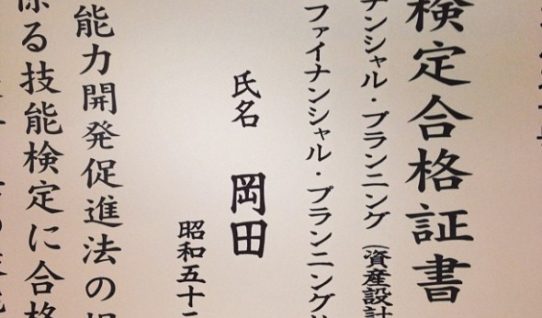 検定合格証書
ナンシャル・プランニング(資産設計
ファイナンシャル・プランニング
氏名 岡田
昭和五十二
能力開発促進法の規
係る技能検定に合格